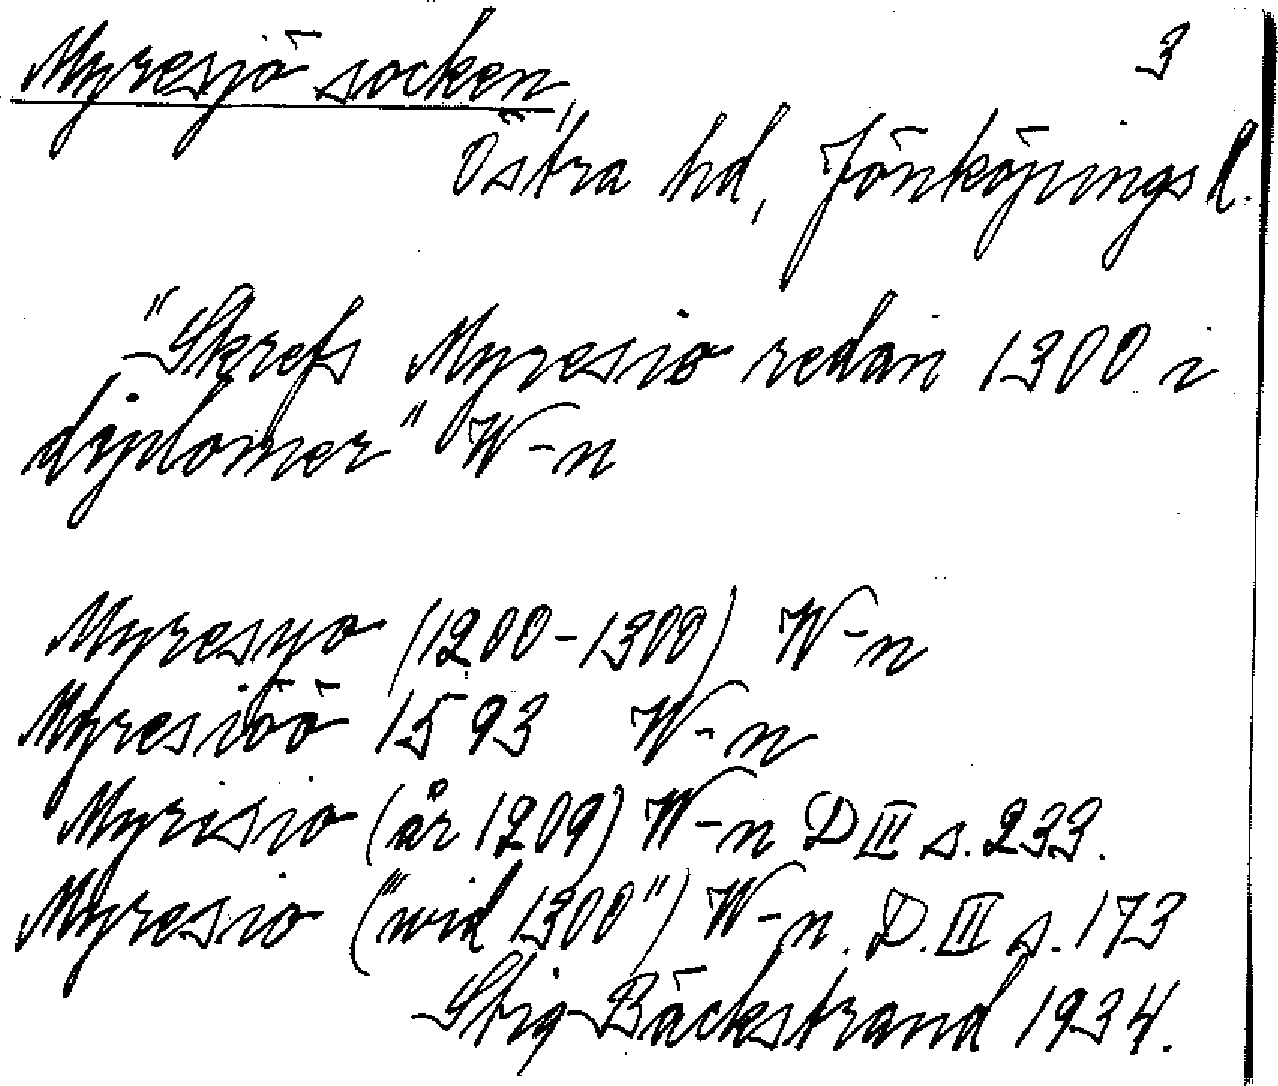 Myresjö socken, 3
Östra hd, Jönköpings l.
"Skrefs Myresio redan 1300 i
diplomer" W-n
Myresyo (1200-1300) W-n
Myresiöö 1593 W-n
Myrisio (år 1209) W-n D II s. 233.
Myresio ("wid 1300") W-n. D. III s. 173
Stig Bäckstrand 1934.